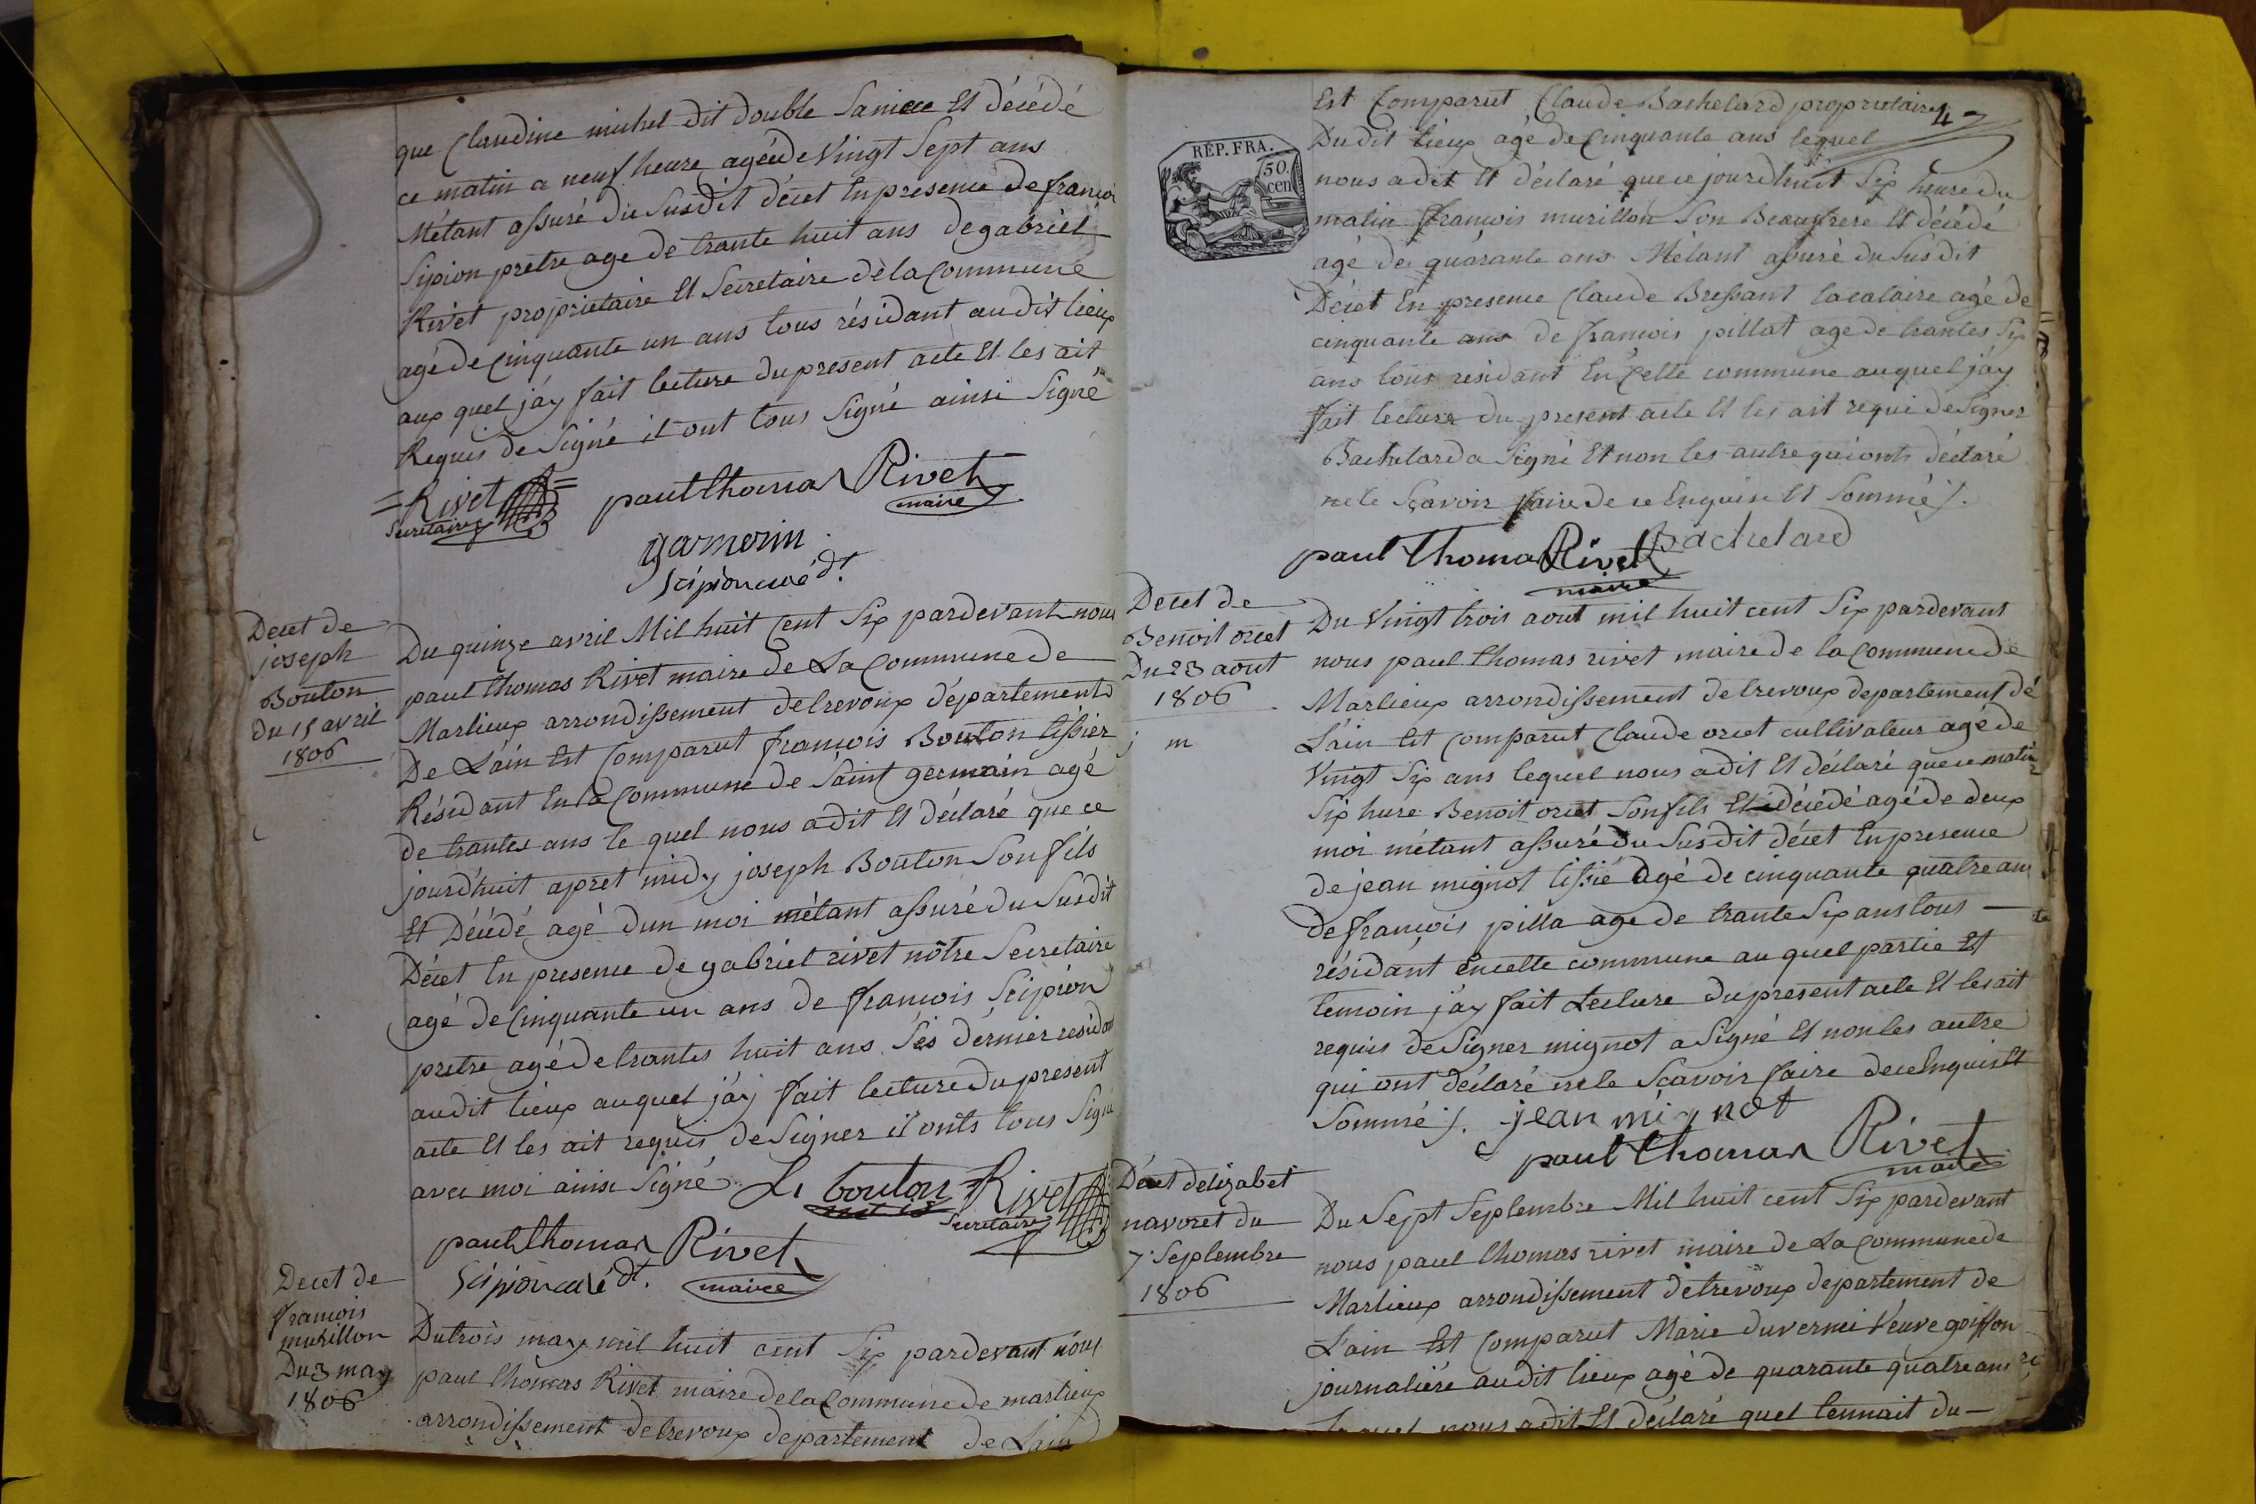 que Claudine michel dit double Saniece Et décédé
ce matin a neuf heure agéede Vingt Sept ans
Métant assuré du Susdit décet En presence de françoi
Sipion prêtre age de trante huit ans de gabriel
Rivet proprietaire Et Secretaire de la Commune
agé de Cinquante un ans tous résidant audit lieux
aux quel jáy fait lecture du present acte Et les ait
Requis de Signé il ont tous Signé ainsi Signé
=Rivet=
Secretaire
paul thomas Rivet
maire
garnerin
Scipion curé dt.
Decet de
joseph
Bouton
du 15 avril
1806
Du quinze avril Mil huit Cent Six pardevant nous
paul thomas Rivet maire de La Commune de
Marlieux arrondissement de trevoux département
De L'ain Est Comparut françois Bouton tissier
Résidant En la Commune de Saint germain agé
de trantes ans le quel nous a dit Et déclaré que ce
jourdhuit apret midy joseph Bouton Son fils
Et Décédé agé dun moi métant assuré du Susdit
Décet En presence de gabriel rivet nôtre Secretaire
agé de Cinquante un ans de françois Scipion
pretre agé de trantes huit ans Ses dérnier residant
audit lieux auquel j'áy fait lecture du present
acte Et les ait requis de Signer il onts tous Signé
avec moi ainsi Signé Le bouton =Rivet
Secretaire
paul thomas Rivet
maire
Scipion curé dt.
Decet de
françois
murillon
Du 3 may
1806
Du trois may mil huit cent Six pardevant nous
paul thomas Rivet maire de la Commune de marlieux
arrondissement de trevoux departement de Lain
4
REP. FRA.
50
cen
Est Comparut Claude Bachelard propriétaire
Du dit lieux agé de Cinquante ans lequel
nous a dit Et déclaré que ce jourdhuit Six heure du
matin françois murillon Son Beaufrere Et décédé
agé de quarante ans Métant assuré du Susdit
Décet En presence Claude Bressant locataire agé de
cinquante ans de françois pillat age de trantes Six
ans tous residant En Cette commune auquel jáy
fait lecture du present acte Et les ait requi de Signer
Bachelard a Signé Et non les autre qui onts déclaré
ne le Sçavoir faire de ce Enquise Et Sommé ./.
paul thomas Rivet Bachelard
maire
Decet de
Benoit orcet
Du 23 aout
1806
j m
Du Vingt trois aout mil huit cent Six pardevant
nous paul thomas rivet maire de la commune de
Marlieux arrondissement de trevoux departement de
L'ain Est Comparut Claude orcet cultivateur agé de
Vingt Six ans lequel nous a dit Et déclaré que ce matin
Six hure Benoit orcet Son fils Et décédé agé de deux
moi métant assuré du Susdit décet En presence
de jean mignot tissié agé de cinquante quatre ans
de françois pilla age de trante Six ans tous
résidant en cette commune au quel partie Et
temoin j'áy fait Lecture du present acte Et les ait
requis de Signer mignot a Signé Et non les autre
qui ont déclaré ne le Sçavoir faire de ce Enquis Et
Sommé ./. jean mignot
paul thomas Rivet
maire
Décet delizabet
navoret du
7 Septembre
1806
Du Sept Septembre Mil huit cent Six pardevant
nous paul thomas rivet maire de La Commune de
Marlieux arrondissement de trevoux departement de
L'ain Est Comparut Marie duvernei Veuve goiffon
journaliére audit lieux agé de quarante quatre ans
nous a dit Et déclaré quel tennait du